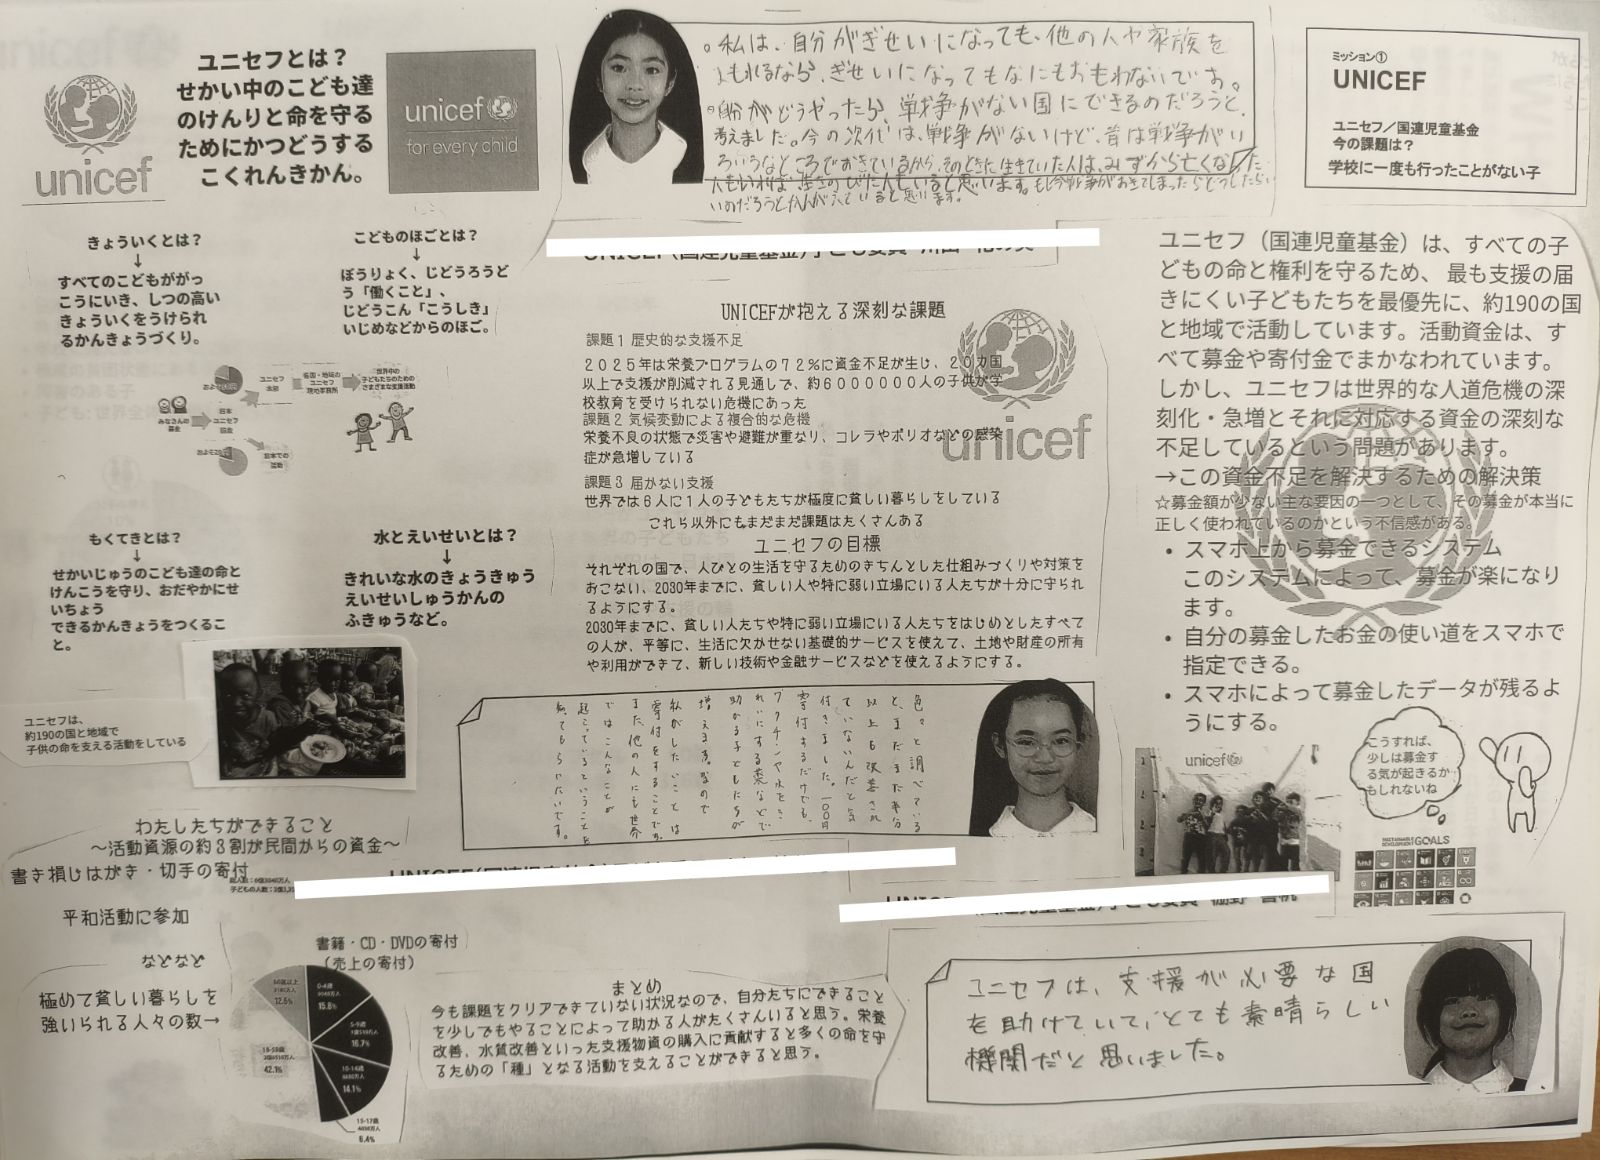 ユニセフとは？
せかい中のこども達
のけんりと命を守る
ためにかつどうする
こくれんきかん。
unicef
unicef
for every child
。私は、自分がぎせいになっても、他の人や家族を
まもれるなら、ぎせいになってもなにもおもわないです。
。自分がどうやったら、戦争がない国にできるのだろうと、
考えました。今の次代は、戦争がないけど、昔は戦争がい
ろいろなところでおきているから、そのときに生きていた人は、みずから亡くなった
人もいれば
ミッション①
UNICEF
ユニセフ／国連児童基金
今の課題は？
学校に一度も行ったことがない子
きょういくとは？
↓
すべてのこどもががっ
こうにいき、しつの高い
きょういくをうけられ
るかんきょうづくり。
こどものほごとは？
↓
ぼうりょく、じどうろうど
う「働くこと」、
じどうこん「こうしき」
いじめなどからのほご。
みなさんの
募金
日本
ユニセフ
協会
ユニセフ
本部
各国・地域の
ユニセフ
現地事務所
世界中の
子どもたちのための
さまざまな支援活動
日本での
活動
もくてきとは？
↓
せかいじゅうのこども達の命と
けんこうを守り、おだやかにせ
いちょう
できるかんきょうをつくるこ
と。
水とえいせいとは？
↓
きれいな水のきょうきゅう
えいせいしゅうかんの
ふきゅうなど。
ユニセフは、
約190の国と地域で
子供の命を支える活動をしている
UNICEFが抱える深刻な課題
課題１ 歴史的な支援不足
２０２５年は栄養プログラムの７２％に資金不足が生じ、２０カ国
以上で支援が削減される見通しで、約６００００００人の子供が学
校教育を受けられない危機にあった
課題２ 気候変動による複合的な危機
栄養不良の状態で災害や避難が重なり、コレラやポリオなどの感染
症が急増している
課題３ 届かない支援
世界では６人に１人の子どもたちが極度に貧しい暮らしをしている
これら以外にもまだまだ課題はたくさんある
unicef
ユニセフの目標
それぞれの国で、人びとの生活を守るためのきちんとした仕組みづくりや対策を
おこない、2030年までに、貧しい人や特に弱い立場にいる人たちが十分に守られ
るようにする。
2030年までに、貧しい人たちや特に弱い立場にいる人たちをはじめとしたすべて
の人が、平等に、生活に欠かせない基礎的サービスを使えて、土地や財産の所有
や利用ができて、新しい技術や金融サービスなどを使えるようにする。
色々と調べている
と、まだまだ半分
以上も改善され
ていないんだと気
付きました。一〇〇円
寄付するだけでも、
ワクチンや水をき
れいにする薬などで
助かる子どもたちが
増える
私がしたいことは
寄付をすることです。
また、他の人にも世界
ではこんなことが
起こっているということを
知ってもらいたいです。
ユニセフ（国連児童基金）は、すべての子
どもの命と権利を守るため、 最も支援の届
きにくい子どもたちを最優先に、約190の国
と地域で活動しています。活動資金は、す
べて募金や寄付金でまかなわれています。
しかし、ユニセフは世界的な人道危機の深
刻化・急増とそれに対応する資金の深刻な
不足しているという問題があります。
→この資金不足を解決するための解決策
☆募金額が少ない主な要因の一つとして、その募金が本当に
正しく使われているのかという不信感がある。
• スマホ上から募金できるシステム
このシステムによって、募金が楽になり
ます。
• 自分の募金したお金の使い道をスマホで
指定できる。
• スマホによって募金したデータが残るよ
うにする。
unicef
こうすれば、
少しは募金す
る気が起きるか
もしれないね
SUSTAINABLE
DEVELOPMENT GOALS
わたしたちができること
～活動資源の約３割が民間からの資金～
書き損じはがき・切手の寄付
平和活動に参加
などなど
書籍・CD・DVDの寄付
（売上の寄付）
極めて貧しい暮らしを
強いられる人々の数→
0-4歳
15.8%
5-9歳
16.7%
10-14歳
14.1%
15-17歳
6.4%
42.1%
60歳以上
12.5%
まとめ
今も課題をクリアできていない状況なので、自分たちにできること
を少しでもやることによって助かる人がたくさんいると思う。栄養
改善、水質改善といった支援物資の購入に貢献すると多くの命を守
るための「種」となる活動を支えることができると思う。
ユニセフは、支援が必要な国
を助けていて、とても素晴らしい
機関だと思いました。